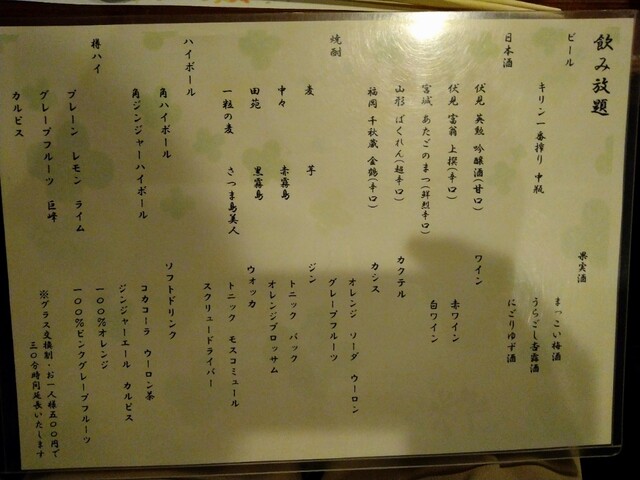 飲み放題
ビール
キリン一番搾り 中瓶
日本酒
伏見 英勲 吟醸酒(甘口)
伏見 富翁 上撰(辛口)
宮城 あたごのまつ(鮮烈辛口)
山形 ばくれん(超辛口)
福岡 千秋蔵 金鶴(辛口)
焼酎
麦 芋
中々 赤霧島
田苑 黒霧島
一粒の麦 さつま島美人
ハイボール
角ハイボール
角ジンジャーハイボール
樽ハイ
プレーン レモン ライム
グレープフルーツ 巨峰
カルピス
果実酒
まっこい梅酒
うらごし杏露酒
にごりゆず酒
ワイン
赤ワイン
白ワイン
カクテル
カシス
オレンジ ソーダ ウーロン
グレープフルーツ
ジン
トニック バック
オレンジブロッサム
ウォッカ
トニック モスコミュール
スクリュードライバー
ソフトドリンク
コカコーラ ウーロン茶
ジンジャーエール カルピス
100%オレンジ
100%ピンクグレープフルーツ
※グラス交換制・お一人様五00円で
三0分時間延長いたします